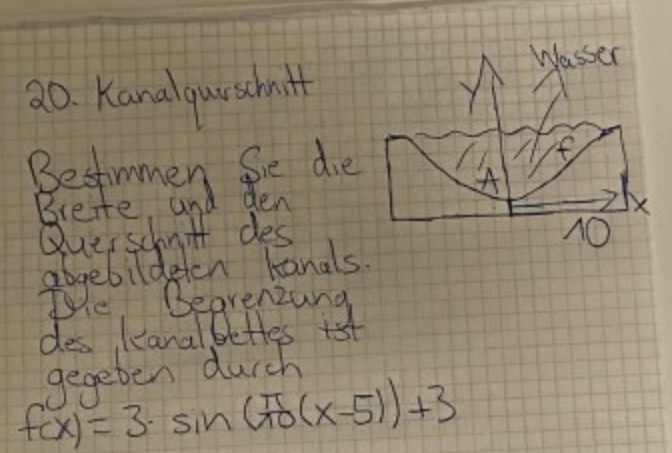 20. Kanalquerschnitt
Wasser
y
f
A
x
10
Bestimmen Sie die
Breite und den
Querschnitt des
abgebildeten Kanals.
Die Begrenzung
des Kanalbettes ist
gegeben durch
f(x) = 3· sin (π/10(x-5))+3